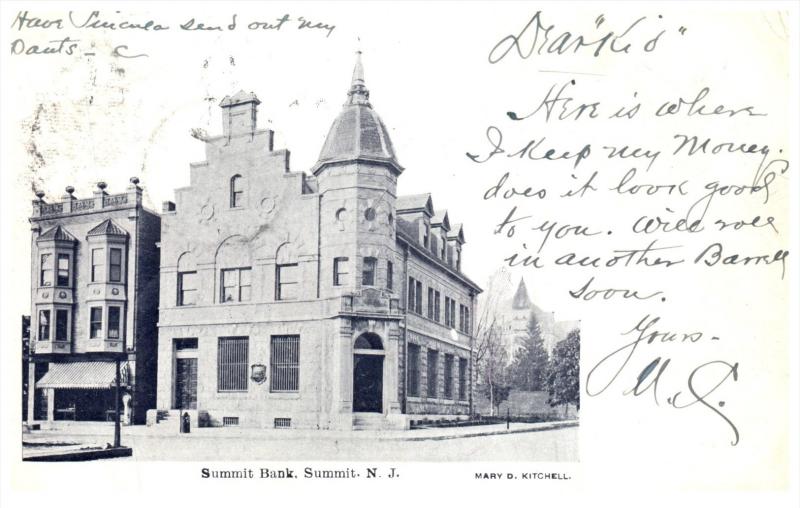 Have Vincula send out my
Pants - C
Dear "Kid"
Here is where
I Keep my Money.
does it look good
to you. Will roll
in another Barrell
soon.
Yours -
M.C.
Summit Bank, Summit. N. J.
MARY D. KITCHELL.